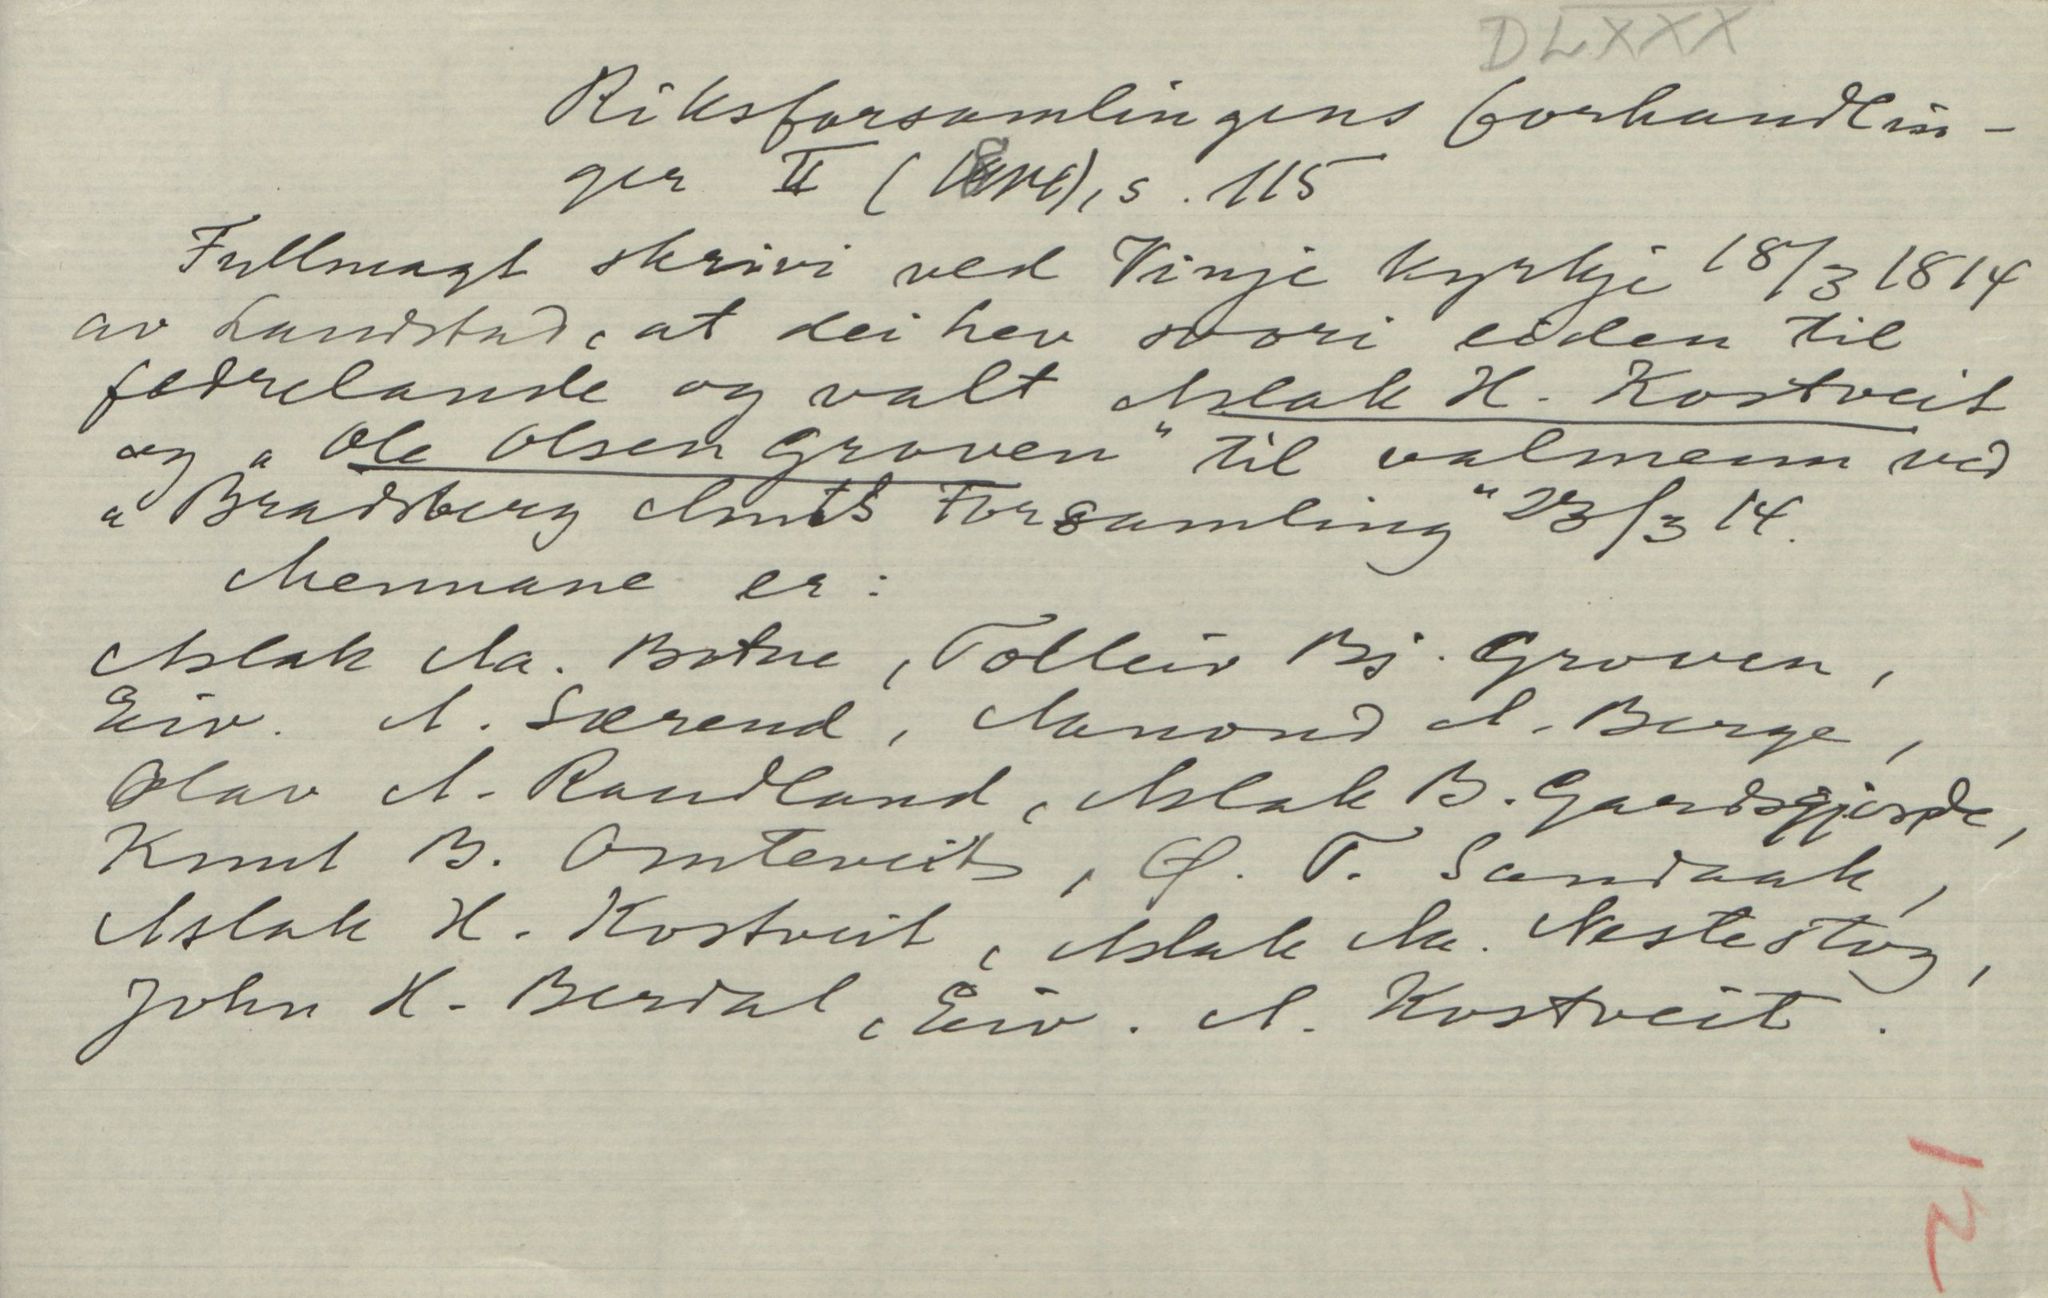 DLXXX
Riksforsamlingens forhandlin-
ger II (), s. 115
Fullmagt skrivi ved Vinje kyrkje 18/3 1814
av Landstad, at dei hev svori eiden til
fedrelande og valt Aslak H. Kostveit
og "Ole Olsen Groven" til valmenn ved
"Bradsberg Amts Forsamling" 23/3 14.
Mennane er:
Aslak Aa. Botne, Tolleiv Bj. Groven,
Eiv. A. Særend, Aamond A. Berge,
Olav A. Raudland, Aslak B. Gardsgjorde,
Knut B. Omtveit, O. T. Sandaak,
Aslak H. Kostveit, Aslak Aa. Nestestog,
John H. Berdal, Eiv. A. Kostveit.
12